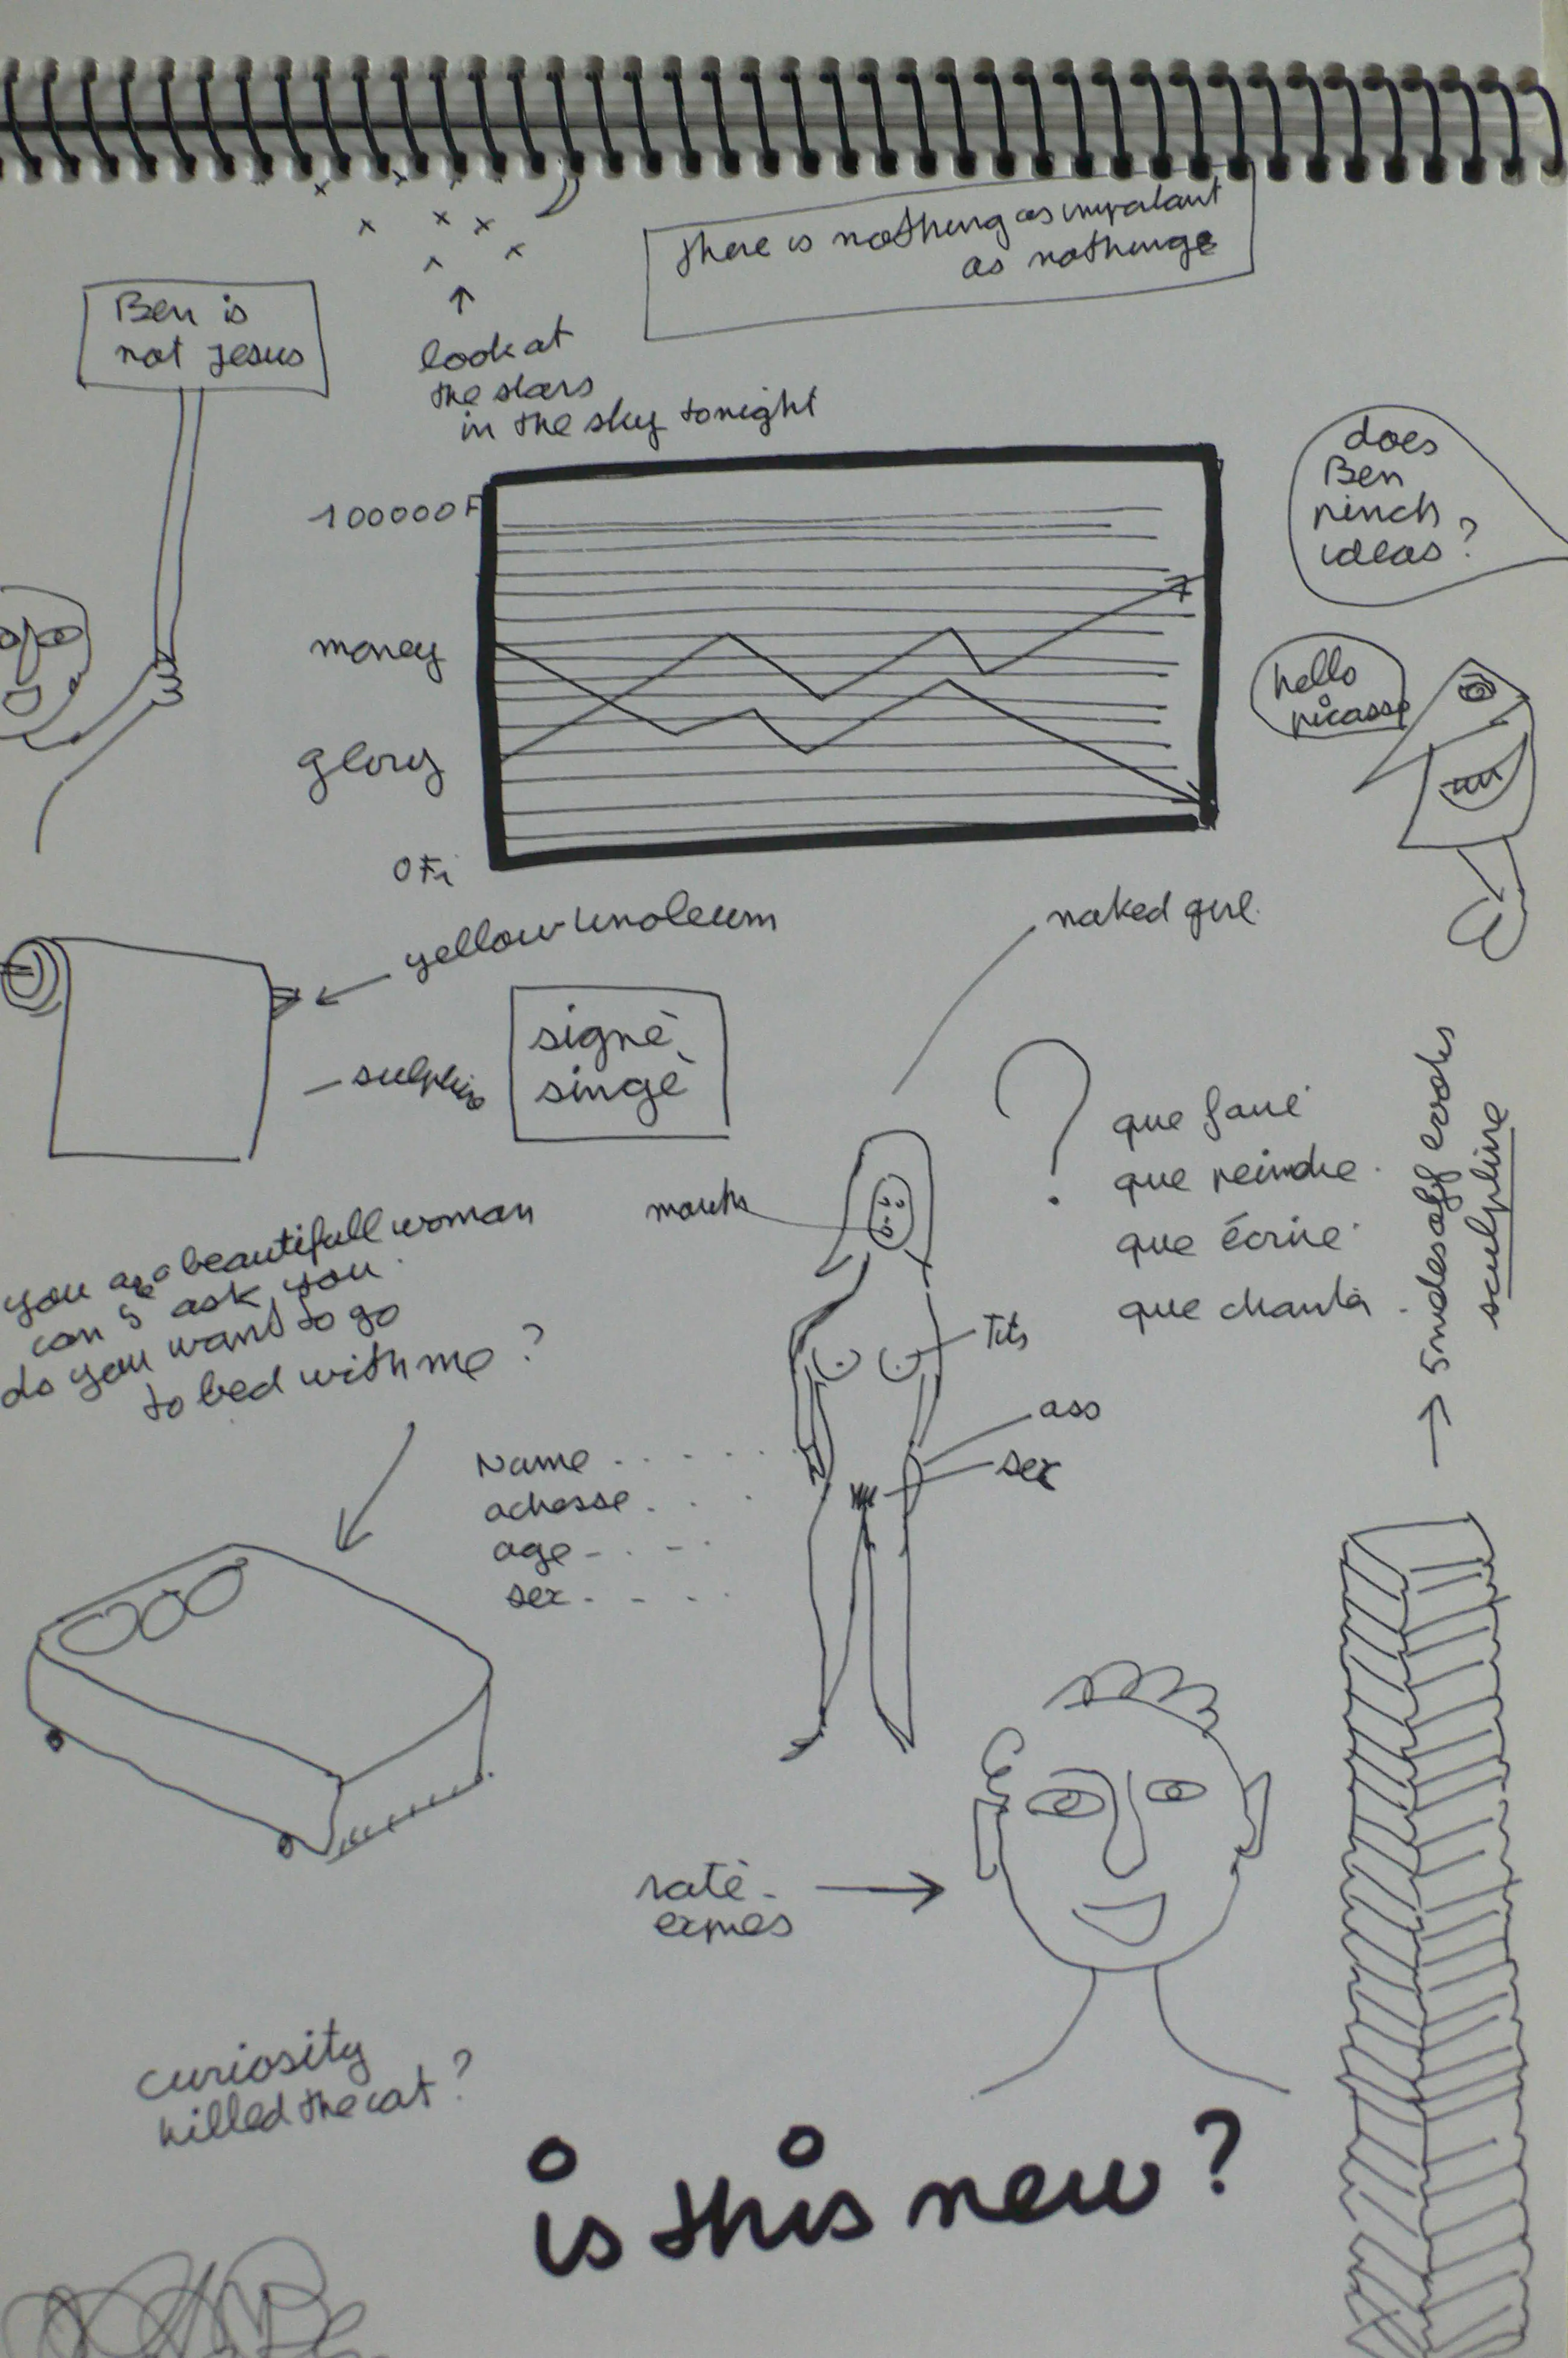 there is nothing as impotant
as nothinge
Ben is
not Jesus
look at
the stars
in the sky tonight
does
Ben
pinch
ideas?
100000F
money
glory
0F
hello
picasso
yellow linoleum
naked girl
signé
singé
mouth
?
que faire
que peindre
que écrire
que chanter
5 miles off books
sculpture
you are a beautifull woman
can I ask you
do you want to go
to bed with me?
Tits
ass
sex
Name . . . . .
adresse . . .
age - . - .
sex . - . .
raté
exprès
curiosity
killed the cat?
is this new?